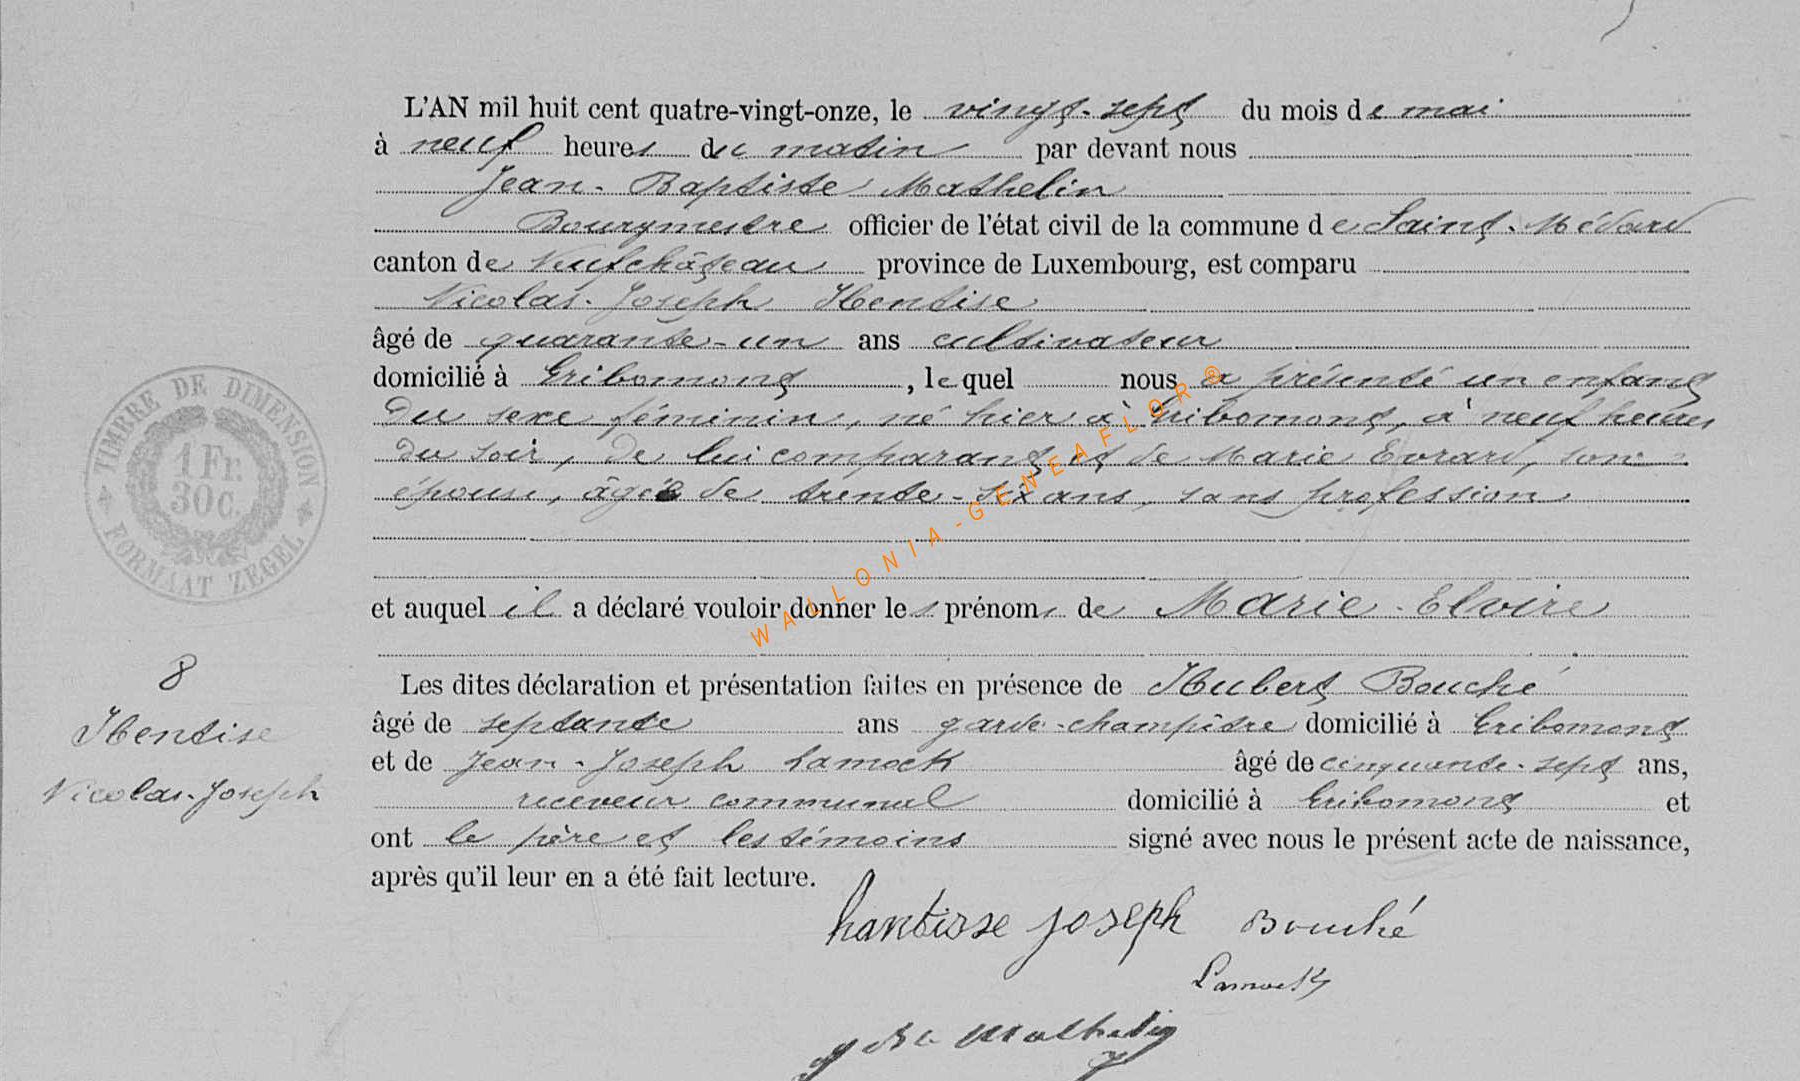 L'AN mil huit cent quatre-vingt-onze, le vingt-sept du mois de mai
à neuf heures du matin par devant nous
Jean-Baptiste Mathelin
Bourgmestre officier de l'état civil de la commune de Saint-Médard
canton de Neufchâteau province de Luxembourg, est comparu
Nicolas-Joseph Hentise
âgé de quarante-un ans cultivateur
domicilié à Gribomont, lequel nous a présenté un enfant
du sexe féminin, né hier à Gribomont, à neuf heures
du soir, de lui comparant et de Marie Evrard, son
épouse, âgée de trente-six ans, sans profession
et auquel il a déclaré vouloir donner les prénoms de Marie-Elvire
Les dites déclaration et présentation faites en présence de Hubert Bouché
âgé de septante ans garde-champêtre domicilié à Gribomont
et de Jean-Joseph Lamock âgé de cinquante-sept ans,
receveur communal domicilié à Gribomont et
ont le père et les témoins signé avec nous le présent acte de naissance,
après qu'il leur en a été fait lecture.
hantisse joseph Bouché
Lamock
J Bte Mathelin
8
Hentise
Nicolas-Joseph
TIMBRE DE DIMENSION
1 Fr.
30c.
FORMAAT ZEGEL
WALLONIA-GENEAFLOR®